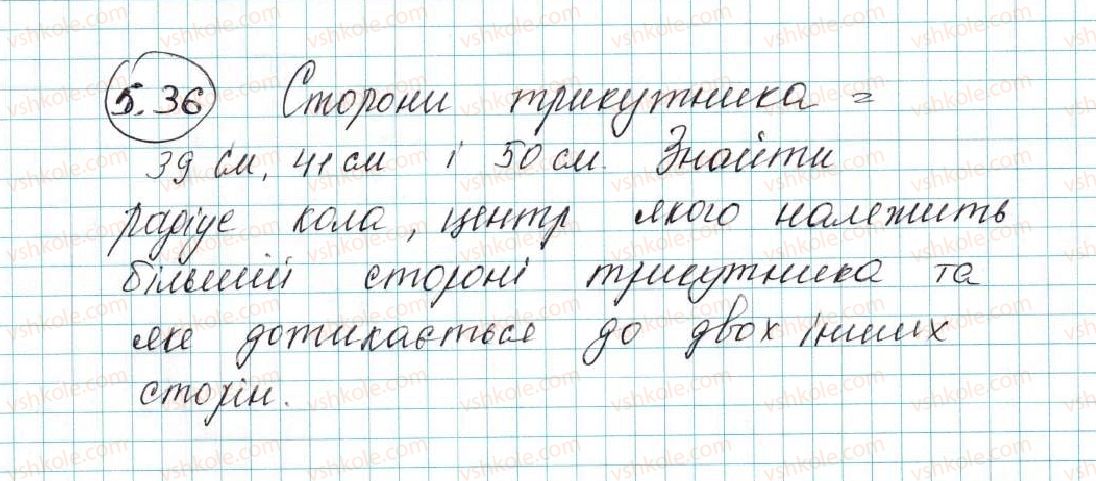 5.36 Сторони трикутника =
39 см, 41 см і 50 см. Знайти
радіус кола, центр якого належить
більшій стороні трикутника та
яке дотикається до двох інших
сторін.